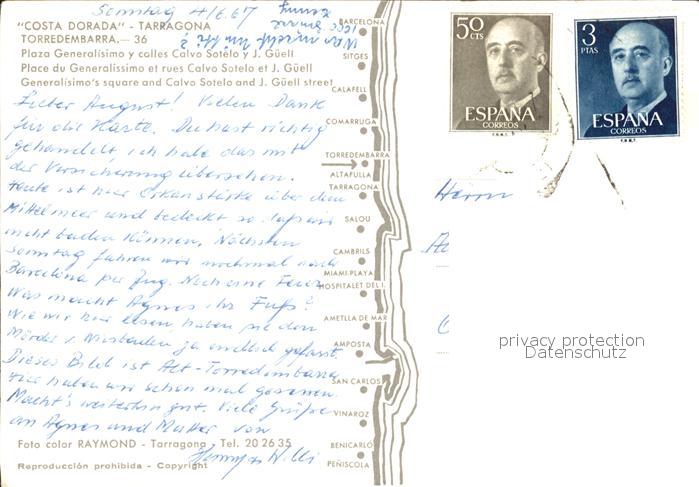 Sonntag 4/6.67
"COSTA DORADA" - TARRAGONA
TORREDEMBARRA.— 36
Plaza Generalísimo y calles Calvo Sotelo y J. Güell
Place du Generalissimo et rues Calvo Sotelo et J. Güell
Generalísimo's square and Calvo Sotelo and J. Güell street
Lieber August! Vielen Dank
für die Karte. Du hast richtig
gehandelt ich habe das mit
der Versicherung übersehen.
Heute ist hier Orkanstärke über dem
Mittelmeer und bedeckt so daß wir
nicht baden können. Nächsten
Sonntag fahren wir nochmal nach
Barcelona per Zug.
Was macht Agnes ihr Fuß?
Wie wir hier lesen, haben sie den
Mörder v. Wiesbaden ja endlich gefasst.
Dieses Bild ist Alt-Torredembarra
Hier haben wir schon mal gesessen.
Macht's weiterhin gut. Viele Grüße
an Agnes und Mutter von
Willi
Foto color RAYMOND - Tarragona - Tel. 20 26 35
Reproducción prohibida - Copyright
BARCELONA
SITGES
CALAFELL
COMARRUGA
TORREDEMBARRA
ALTAFULLA
TARRAGONA
SALOU
CAMBRILS
MIAMI-PLAYA
HOSPITALET DEL I.
AMETLLA DE MAR
AMPOSTA
SAN CARLOS
VINAROZ
BENICARLÓ
PEÑISCOLA
50
CTS
ESPAÑA
CORREOS
F.N.M.T.
3
PTAS
ESPAÑA
CORREOS
F.N.M.T.
Herrn
privacy protection
Datenschutz